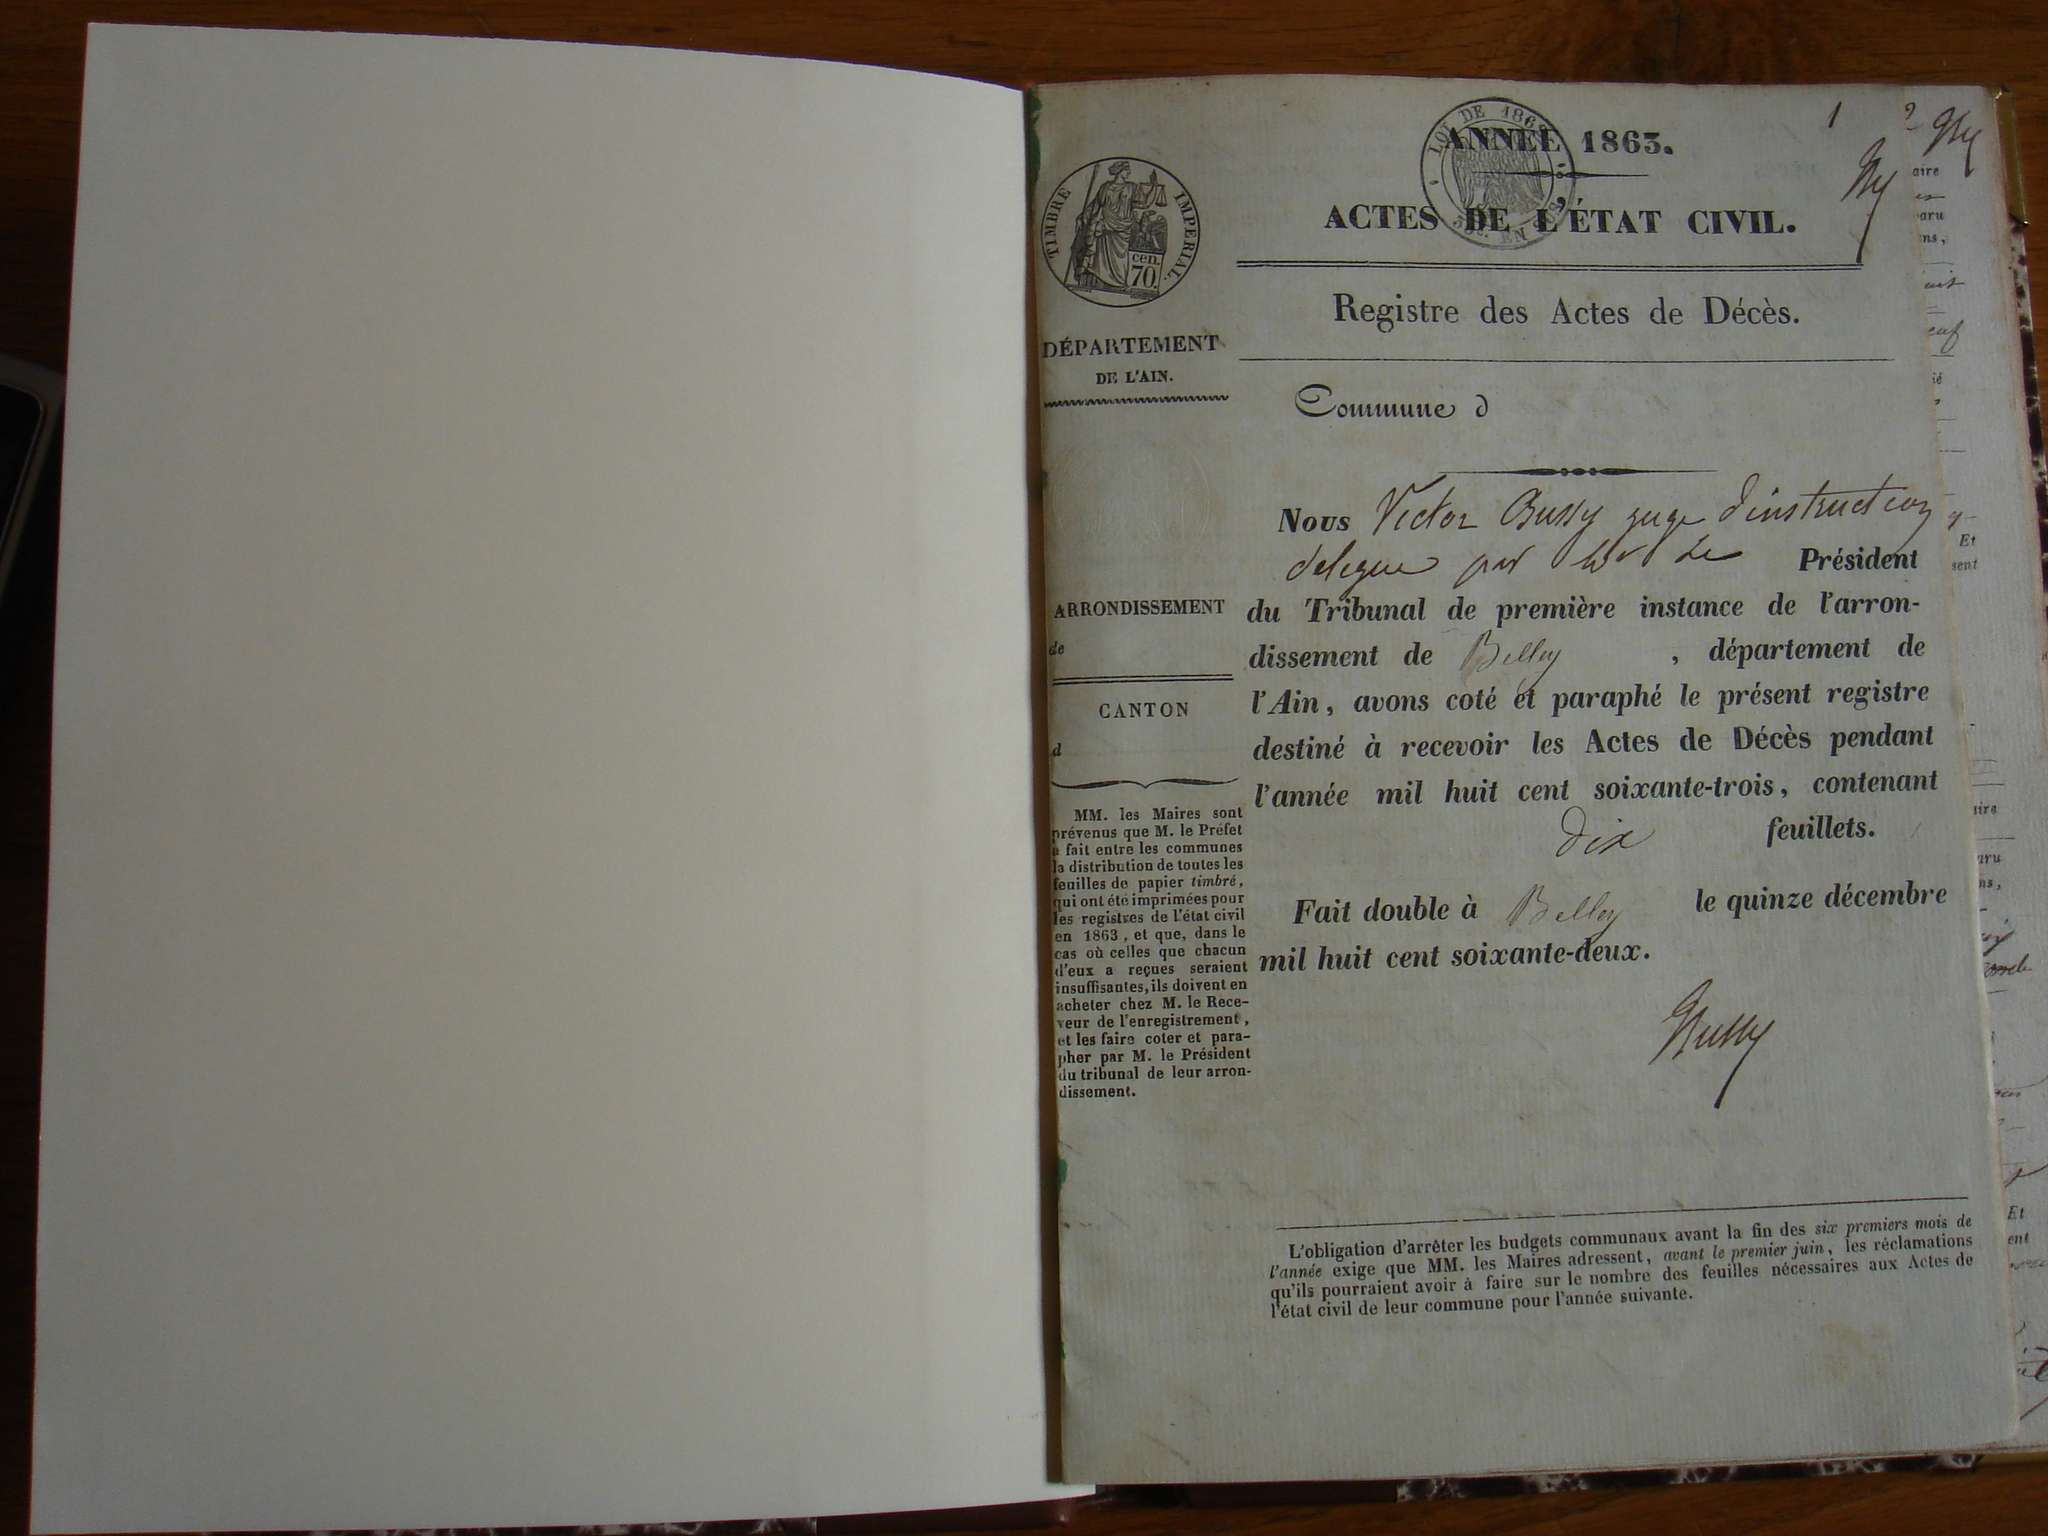 ANNÉE 1863.
1
2
LOI DE 1862
EN SUS
TIMBRE IMPERIAL.
cen.
70.
ACTES DE L'ÉTAT CIVIL.
Registre des Actes de Décès.
DÉPARTEMENT
DE L'AIN.
Commune d
ARRONDISSEMENT
de
CANTON
d
MM. les Maires sont
prévenus que M. le Préfet
a fait entre les communes
la distribution de toutes les
feuilles de papier timbré,
qui ont été imprimées pour
les registres de l'état civil
en 1863, et que, dans le
cas où celles que chacun
d'eux a reçues seraient
insuffisantes, ils doivent en
acheter chez M. le Rece-
veur de l'enregistrement,
et les faire coter et para-
pher par M. le Président
du tribunal de leur arron-
dissement.
Nous Victor Bussy juge d'instruction
delegue par Mr le Président
du Tribunal de première instance de l'arron-
dissement de Belley , département de
l'Ain, avons coté et paraphé le présent registre
destiné à recevoir les Actes de Décès pendant
l'année mil huit cent soixante-trois, contenant
dix feuillets.
Fait double à Belley le quinze décembre
mil huit cent soixante-deux.
Bussy
L'obligation d'arrêter les budgets communaux avant la fin des six premiers mois de
l'année exige que MM. les Maires adressent, avant le premier juin, les réclamations
qu'ils pourraient avoir à faire sur le nombre des feuilles nécessaires aux Actes de
l'état civil de leur commune pour l'année suivante.